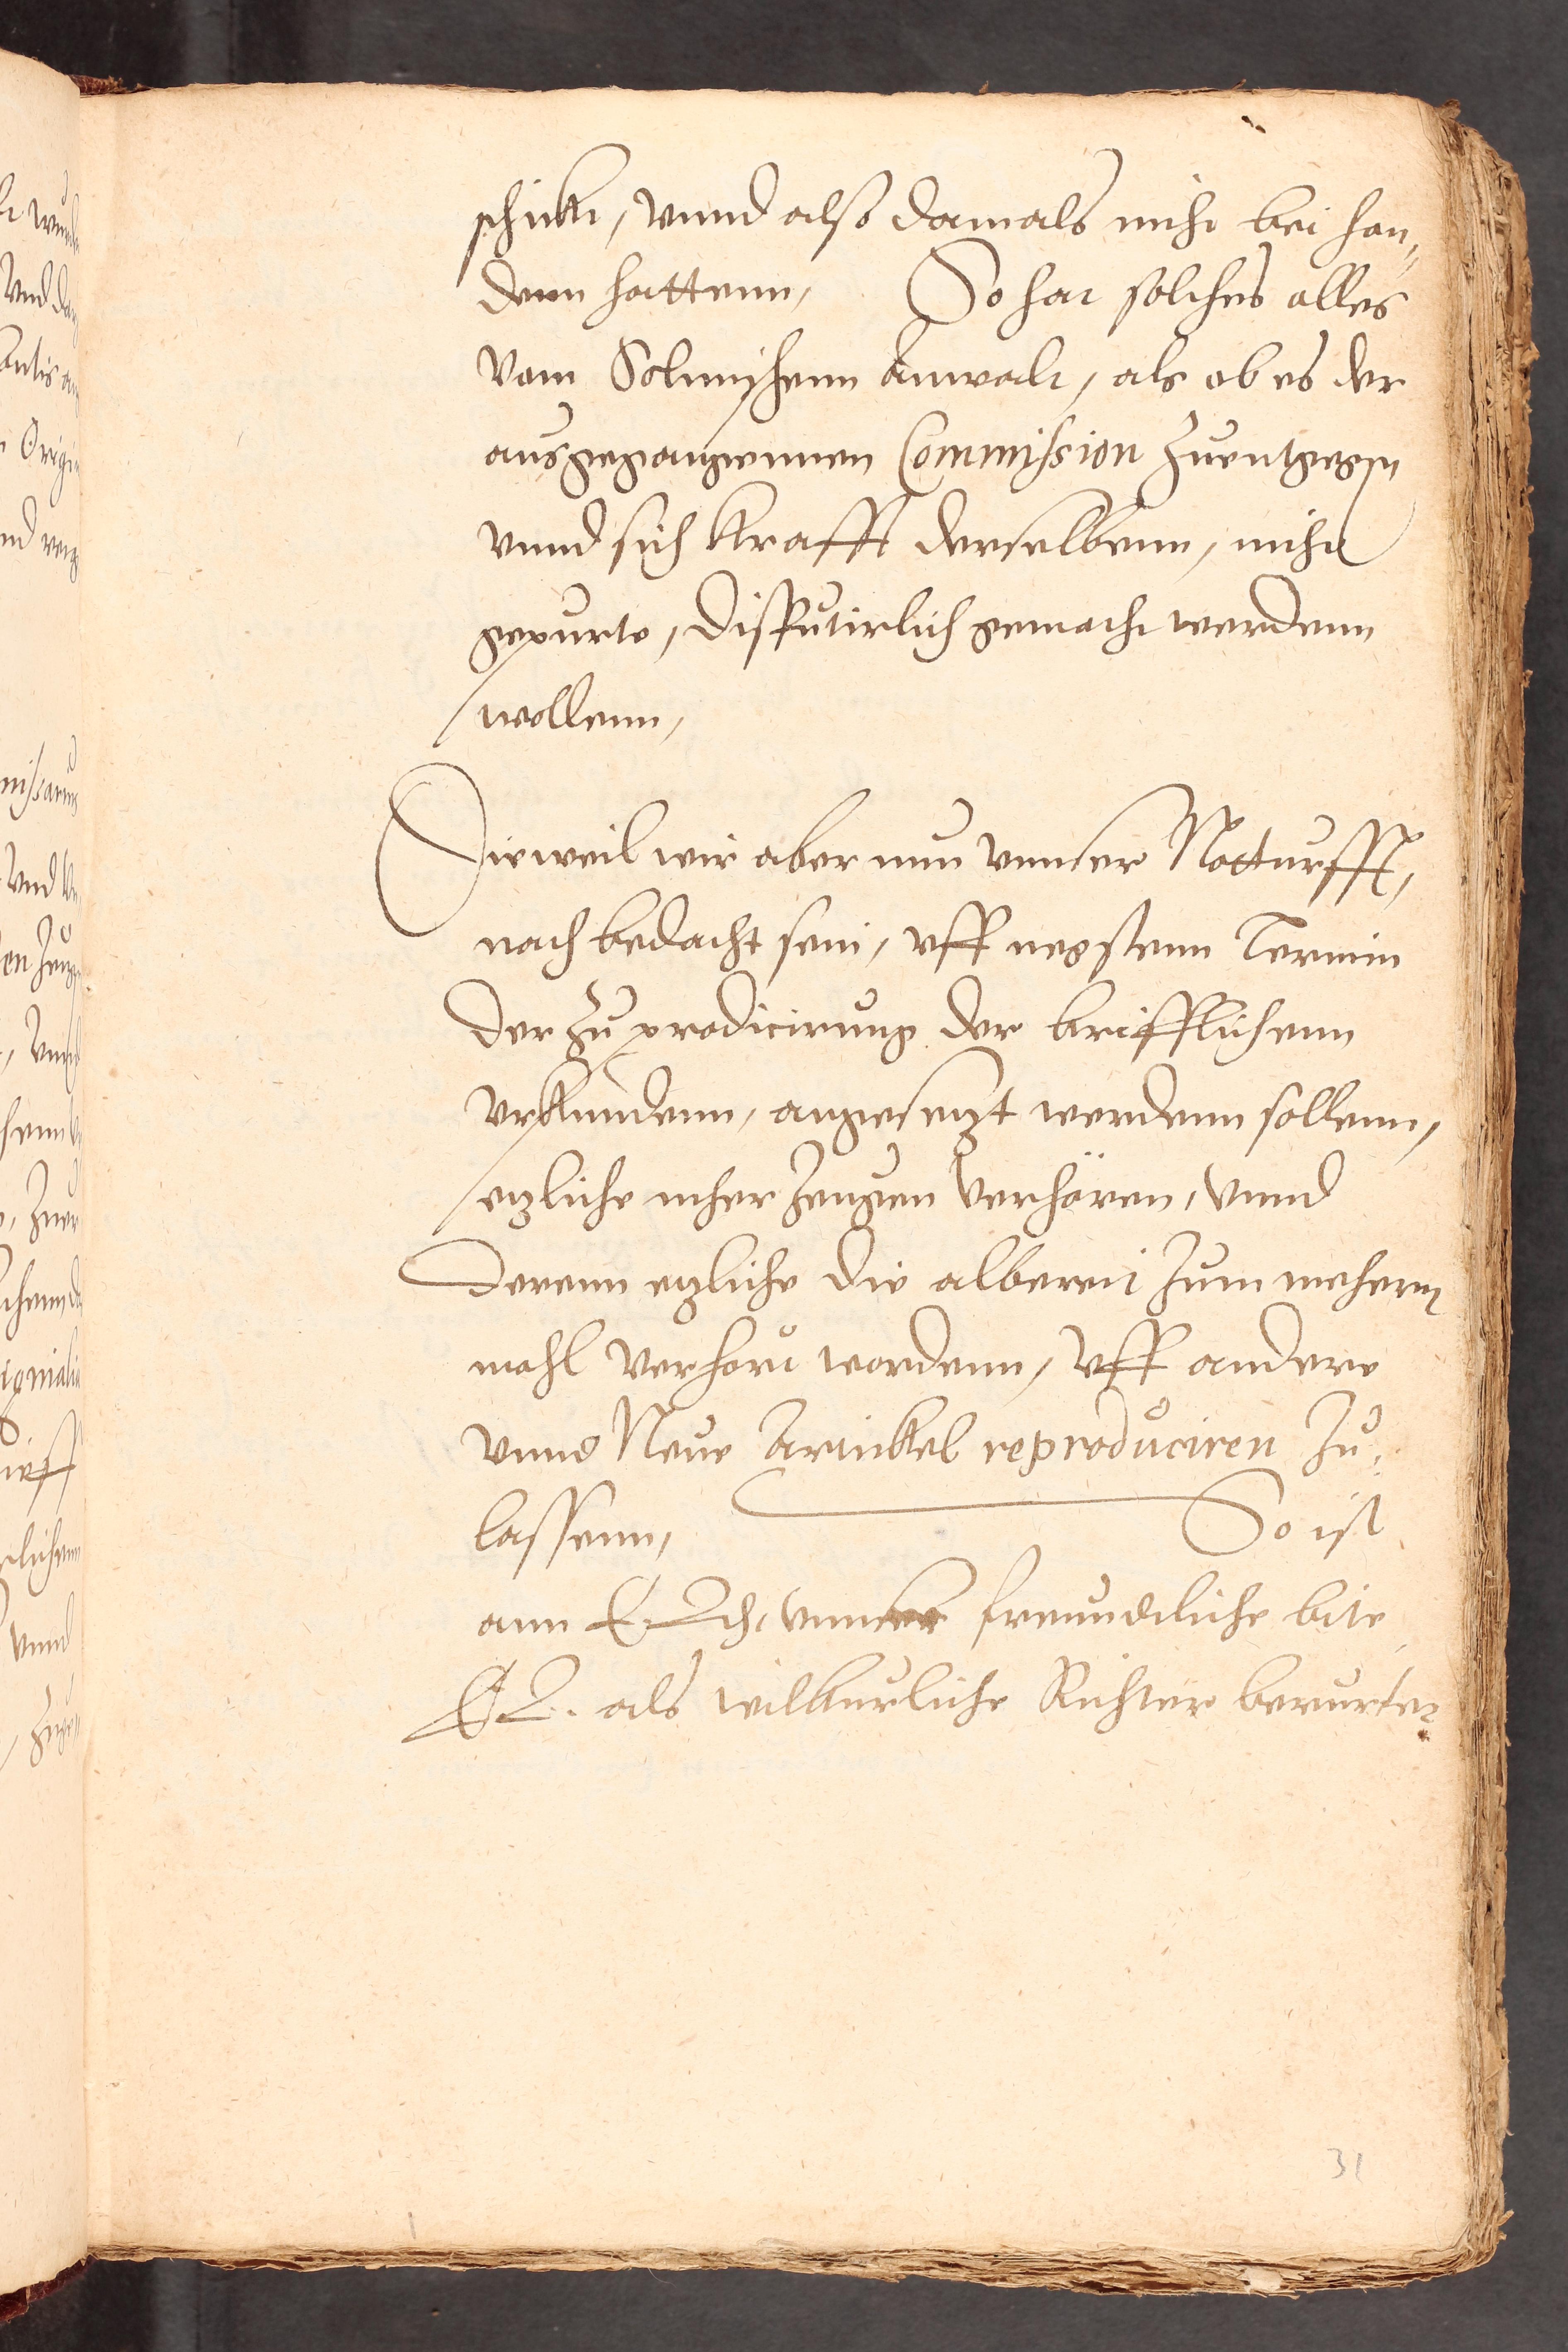 schickt, vnnd also damals nicht bei han„
denn hattenn, So hat solches alles
vom Solmischenn Anwalt, als ob es der
ausgegangennen Commission zuentgegen
vnnd sich krafft derselbenn, nicht
gepurte, disputirlich gemacht werdenn
wollenn,
Dieweil wir aber nun vnnser Notturfft,
nach bedacht sein, vff negstenn Termin
der zu prodicirung der brifflichenn
vrkundenn, angesetzt werdenn sollenn,
etzliche meher Zeugen verhören, vnnd
derenn etzliche die albereit zum mehern
mahl verhört wordenn, vff andere
vnnd Neue Artickel reproduciren zu„
lassenn, So ist
ann E. L. vnnser freundtliche bite
E L. als wilkurliche Richter berurter
31